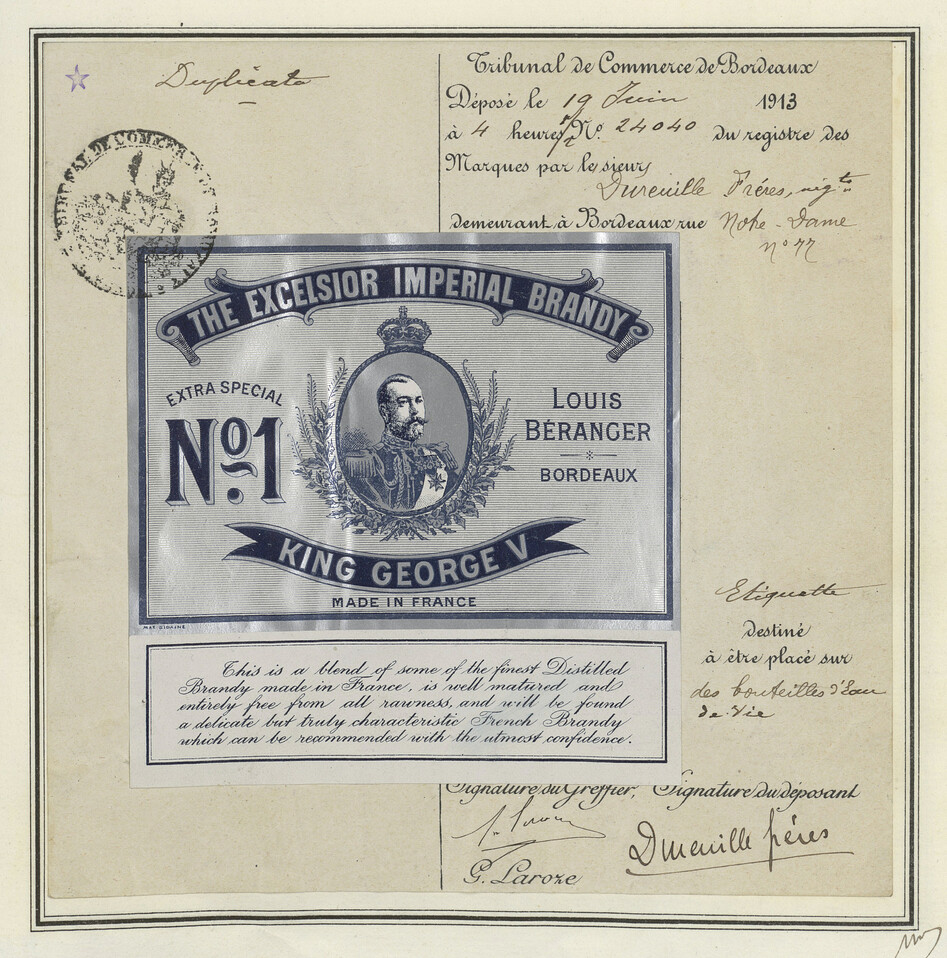 Duplicata
Tribunal de Commerce de Bordeaux
Déposé le 19 Juin 1913
à 4 heures 1/2 No. 24040 du registre des
Marques par le sieurs
Dureuille Fréres, négts
demeurant à Bordeaux rue Notre-Dame
n° 77
TRIBUNAL DE COMMERCE DE
THE EXCELSIOR IMPERIAL BRANDY
EXTRA SPECIAL
No. 1
LOUIS
BÉRANGER
BORDEAUX
KING GEORGE V
MADE IN FRANCE
This is a blend of some of the finest Distilled
Brandy made in France, is well matured and
entirely free from all rawness, and will be found
a delicate but truly characteristic French Brandy
which can be recommended with the utmost confidence.
Etiquette
destiné
à être placé sur
des bouteilles d'Eau
de-Vie
Signature du Greffier, Signature du déposant
Dureuille fréres
G. Laroze